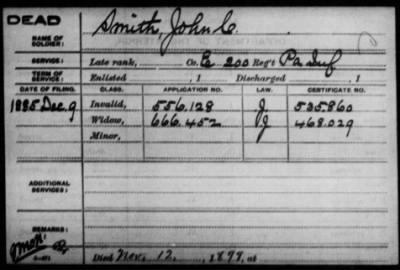 DEAD
NAME OF SOLDIER: Smith, John C.
SERVICE: Late rank, Co. E 200 Reg't Pa Inf
TERM OF SERVICE: Enlisted , 1 Discharged , 1
DATE OF FILING. CLASS. APPLICATION NO. LAW. CERTIFICATE NO.
1885 Dec. 9 Invalid, 556.128 J 535860
Widow, 666.452 J 468.029
Minor,
ADDITIONAL SERVICES:
REMARKS:
Died Nov. 12, , 1897, at